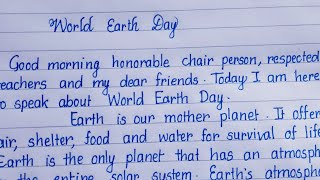 World Earth Day
Good morning honorable chair person, respected
teachers and my dear friends. Today I am here
to speak about World Earth Day.
Earth is our mother planet. It offer
air, shelter, food and water for survival of life
Earth is the only planet that has an atmosph
the entire solar system. Earth's atmosphe